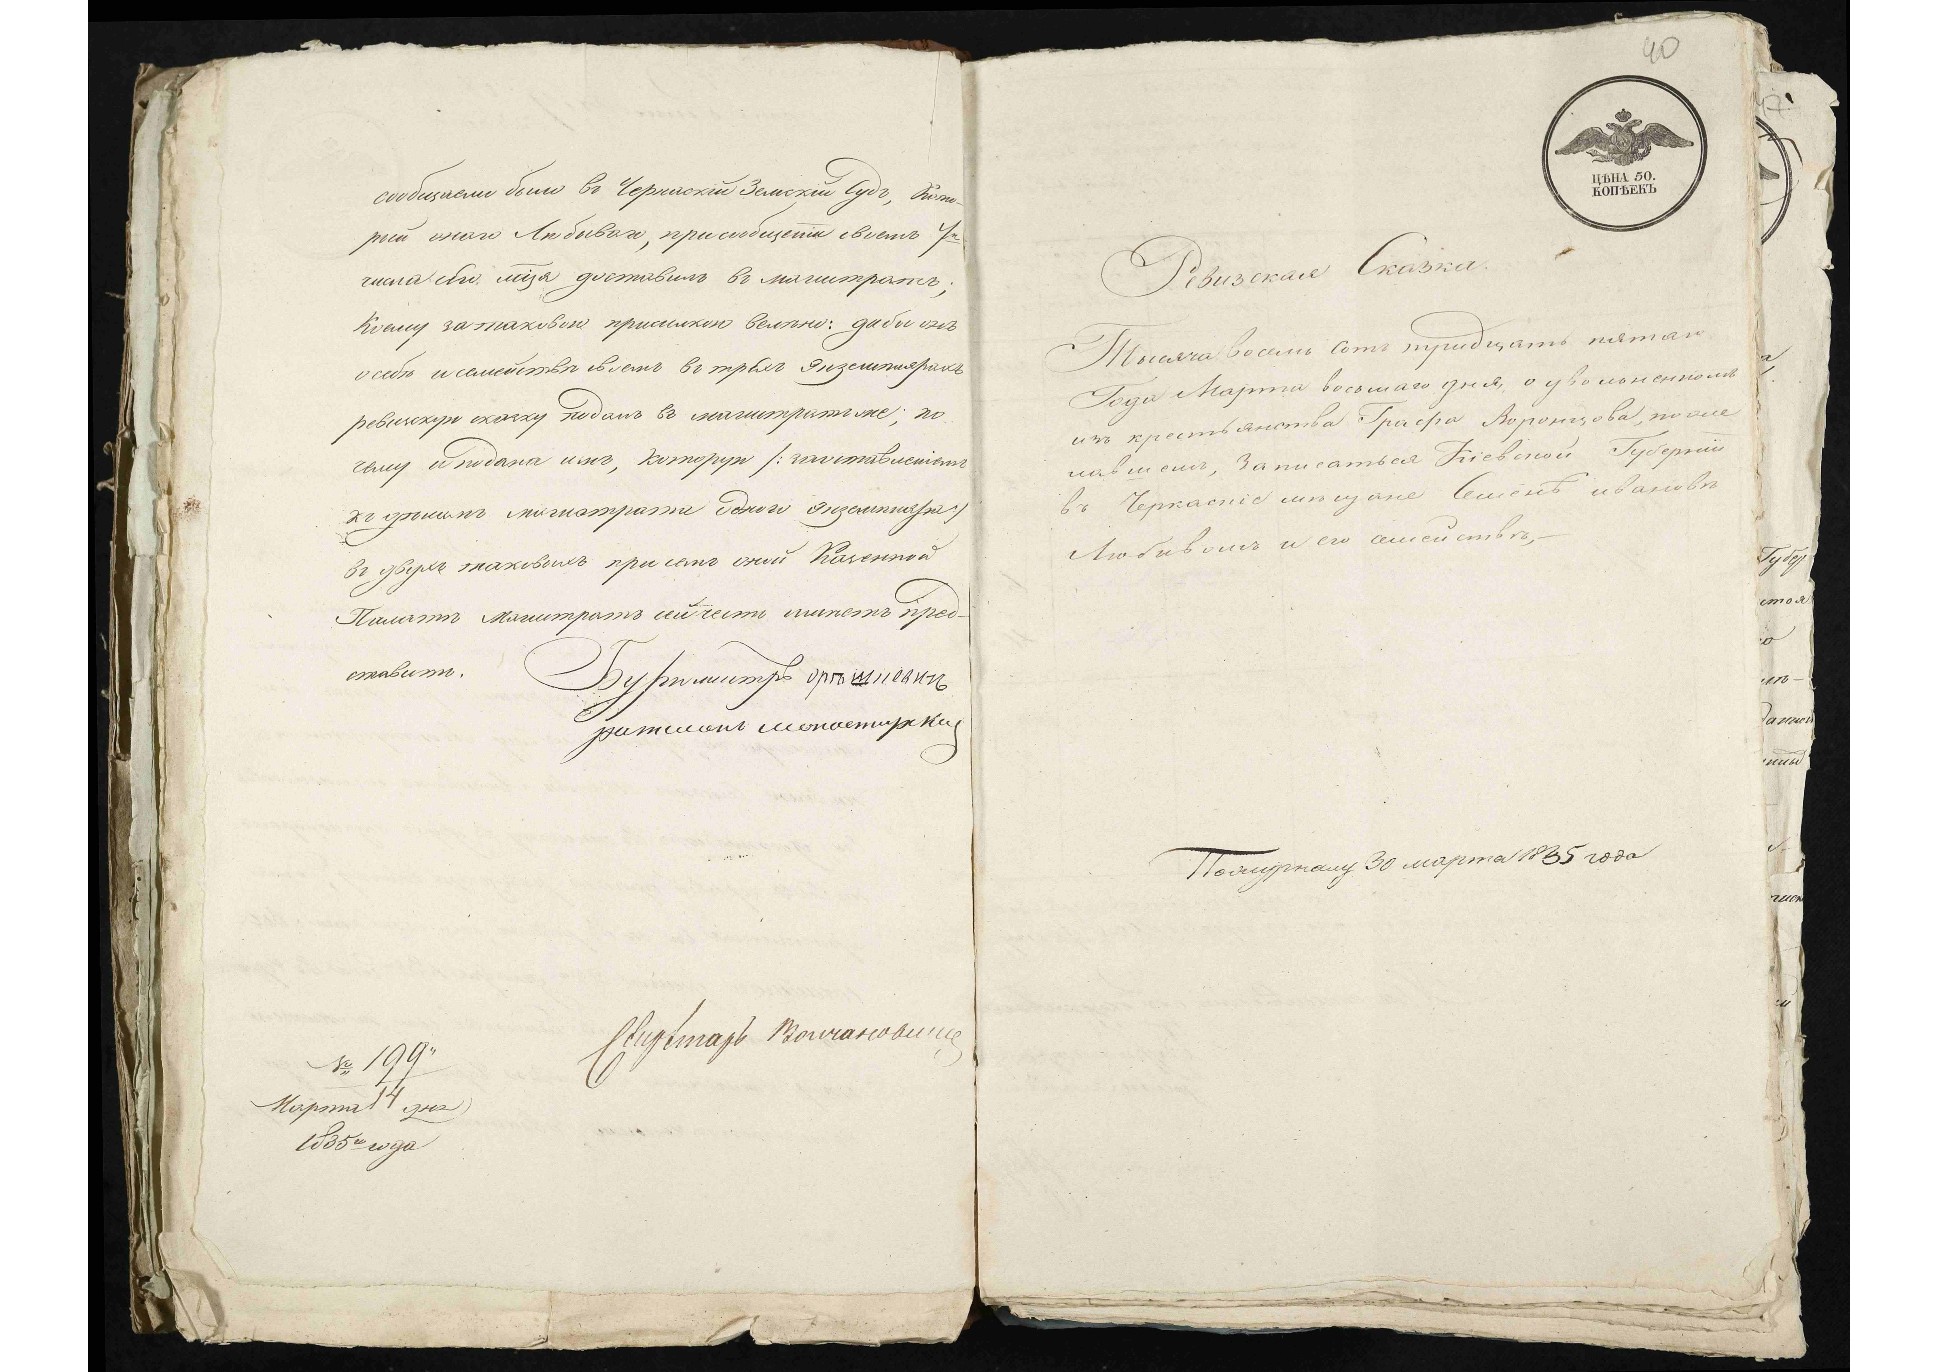 сообщаемо было въ Черкаскій Земскій Судъ, Кото-
рый онаго Любиваго, при сообщеніи своемъ 7го
числа сего м-ца доставилъ въ магистратъ;
Коему за таковою присылкою велѣно: дабы онъ
о себѣ и семействѣ своемъ въ трехъ экземплярахъ
ревизскую сказку подалъ въ магистратъ же; по
чему и подана имъ, которую /: за оставленіемъ
къ дѣламъ магистрата одного экземпляра :/
въ двухъ таковыхъ при семъ оной Казенной
Палатѣ Магистратъ сей честь имѣетъ пред-
ставить.
Бурмистръ
ратманъ Монастирский
Секретарь
№ 199й
Марта 14 дня
1835го года
40
ЦѢНА 50.
КОПѢЕКЪ
Ревизская Сказка.
Тысяча восемь сотъ тридцать пятаго
Года Марта восьмаго дня, о уволненномъ
изъ крестьянства Графа Воронцова, поже
лавшемъ, Записаться Кіевской Губерніи
въ Черкаскіе мещане Семенѣ ивановѣ
Любивомъ и его семействѣ,—
Получкалу 30 марта 1835 года